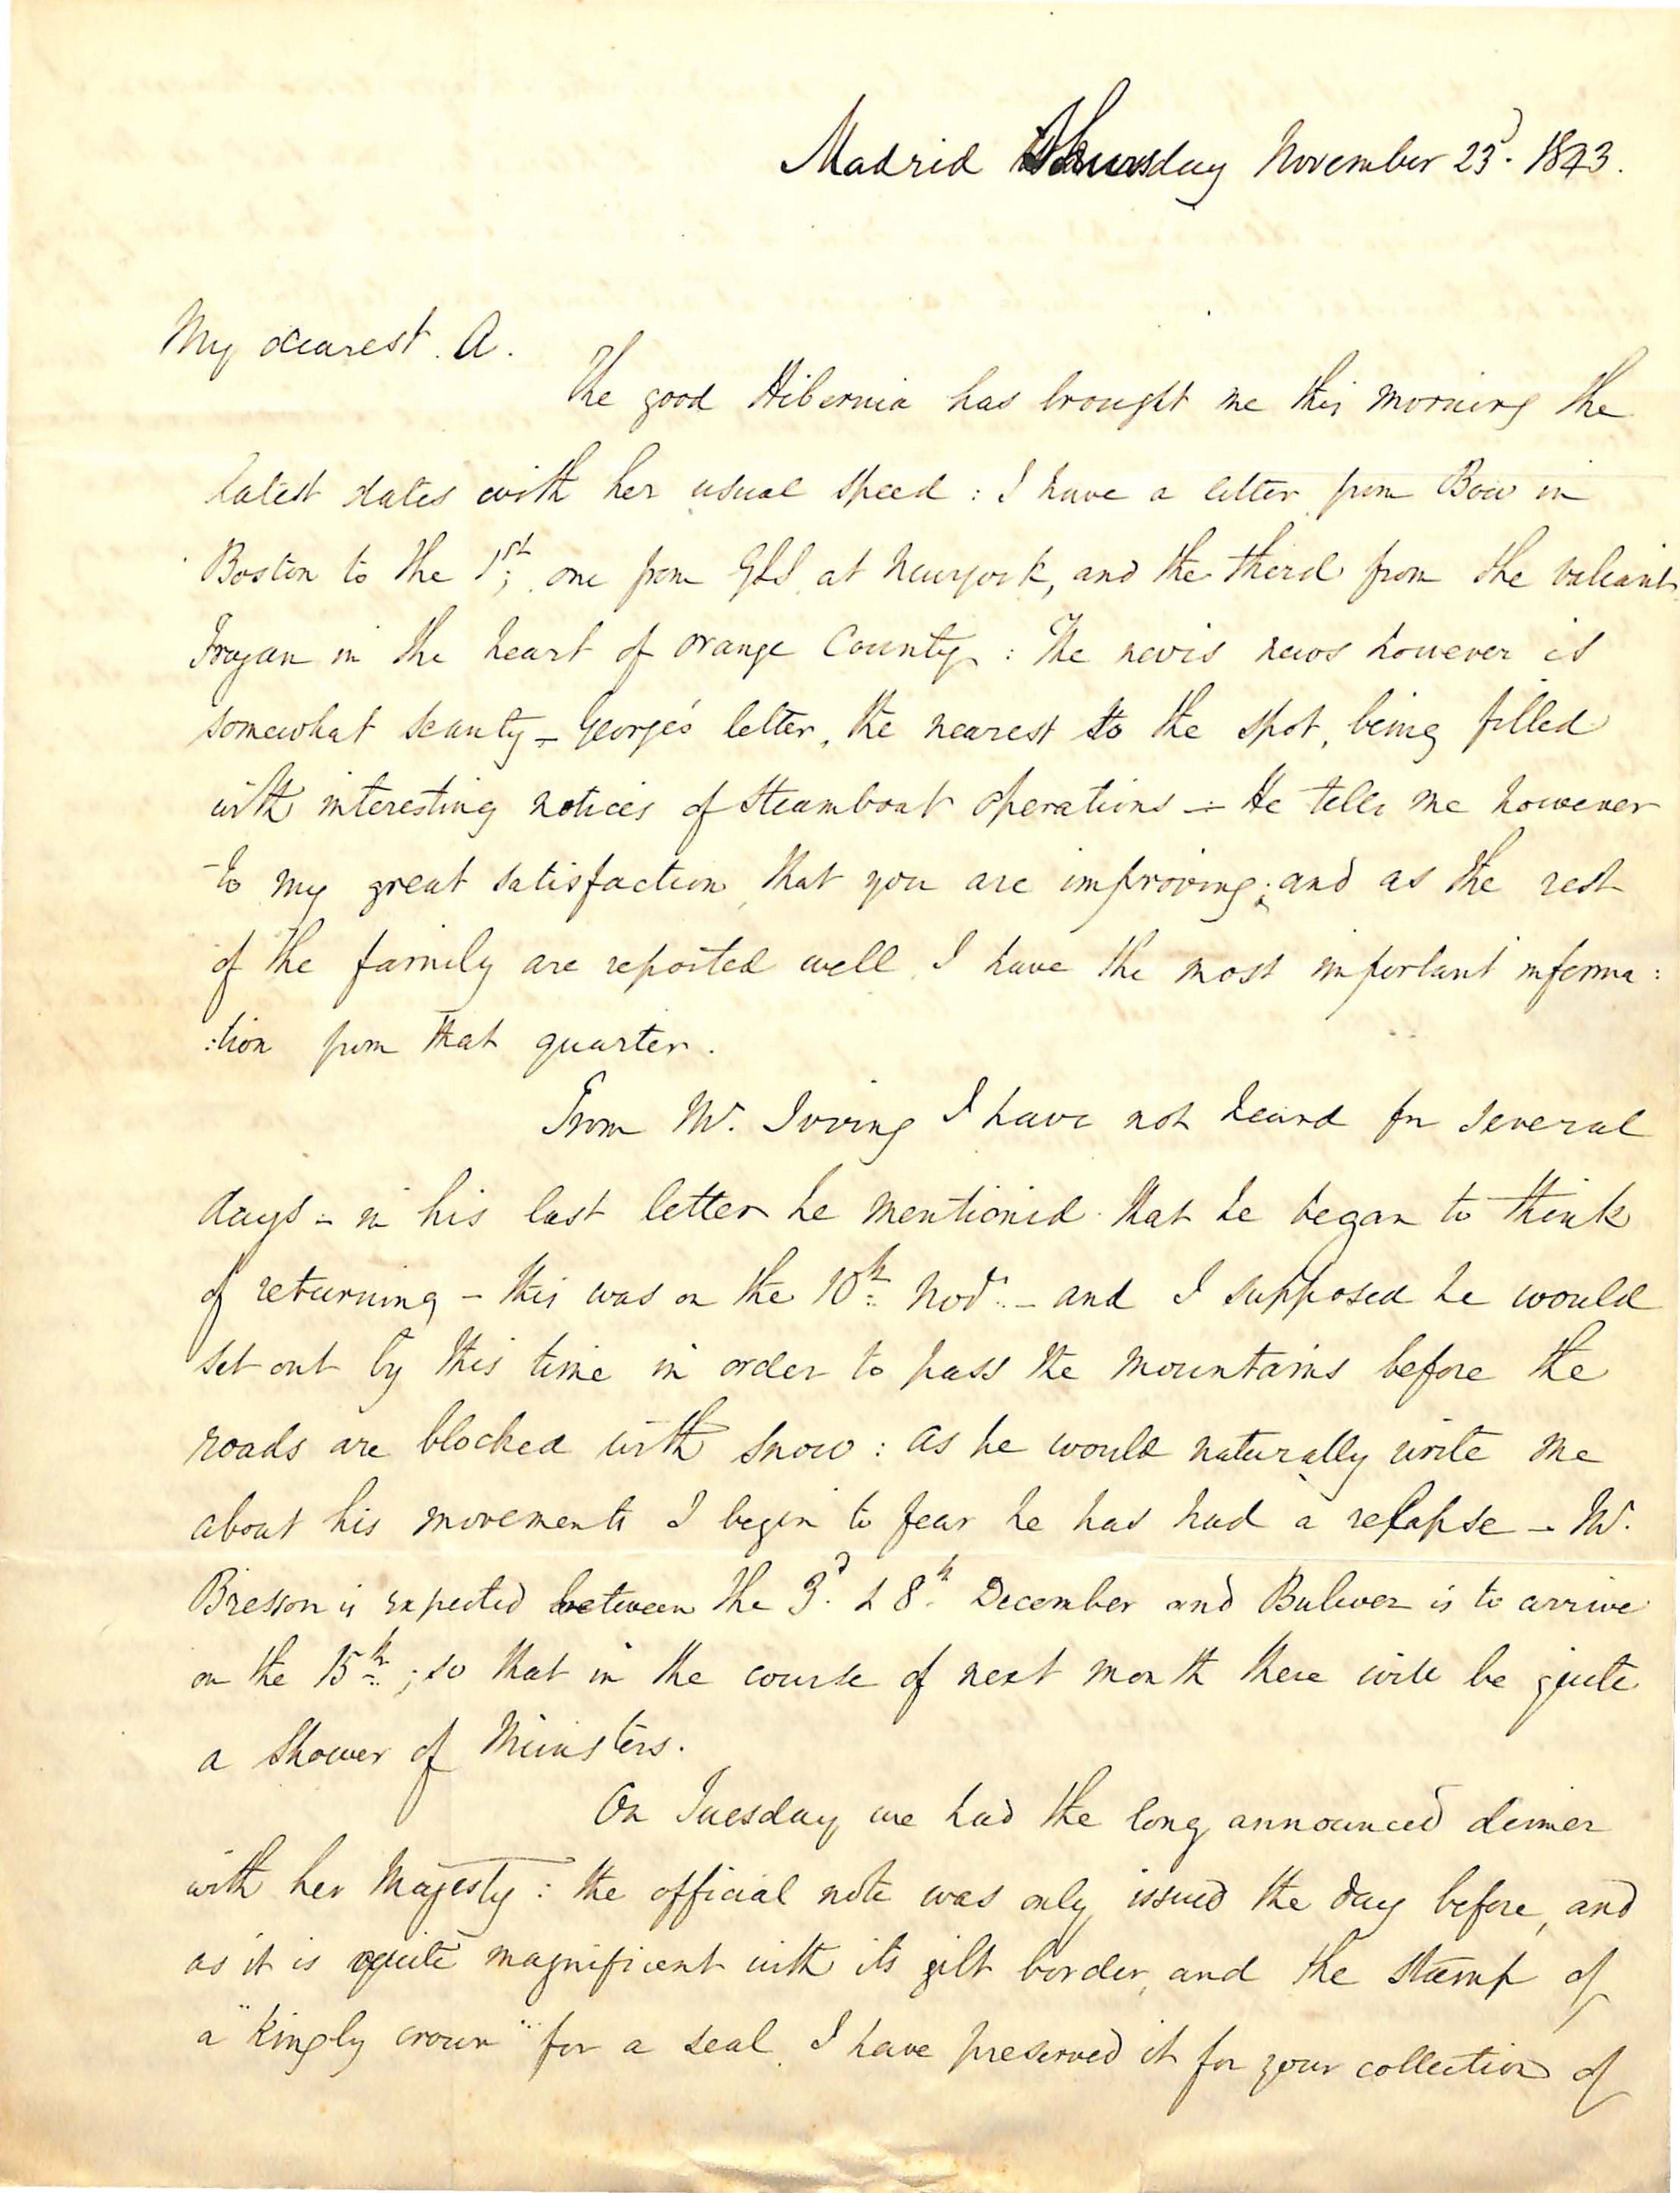 Madrid Thursday November 23d. 1843.
My dearest. A.
The good Hibernia has brought me this morning the
latest dates with her usual speed : I have a letter from Bow in
Boston to the 1st; one from GLS at Newyork, and the third from the valiant
Trojan in the heart of orange County : The nevis news however is
somewhat scanty - George's letter, the nearest to the spot, being filled
with interesting notices of Steamboat operations - He tells me however
to my great satisfaction, that you are improving; and as the rest
of the family are reported well I have the most important informa:
:tion from that quarter.
From Mr. Irving I have not heard for several
days - in his last letter he mentioned that he began to think
of returning - this was on the 10th Novr. - and I supposed he would
set out by this time in order to pass the mountains before the
roads are blocked with snow : as he would naturally write me
about his movements I begin to fear he has had a relapse - Mr.
Bresson is expected between the 3d. & 8th December and Bulwer is to arrive
on the 15th; so that in the course of next month there will be quite
a shower of Ministers.
On Tuesday we had the long announced dinner
with her Majesty : the official note was only issued the day before, and
as it is quite magnificent with its gilt border, and the stamp of
a "kingly crown" for a seal I have preserved it for your collection of